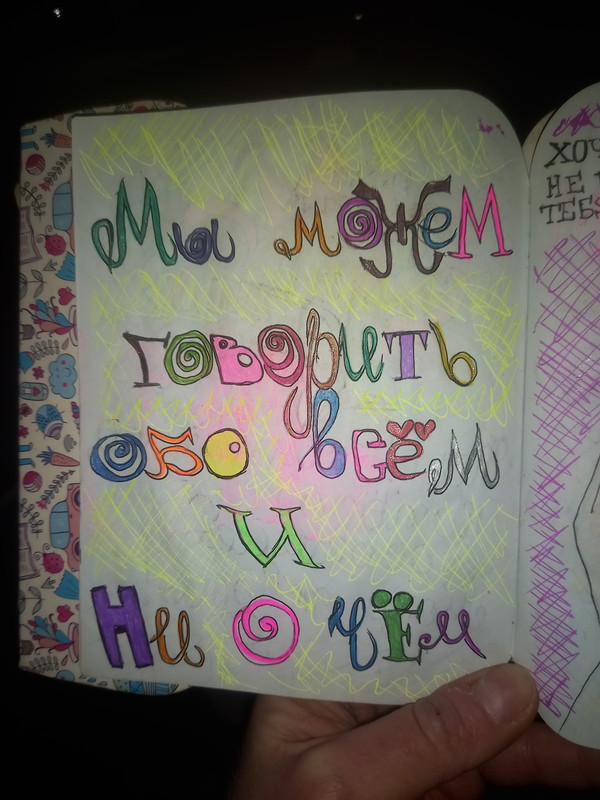 Мы можем
говорить
обо всём
и
ни о чём
ХОЧ
НЕ
ТЕБЯ